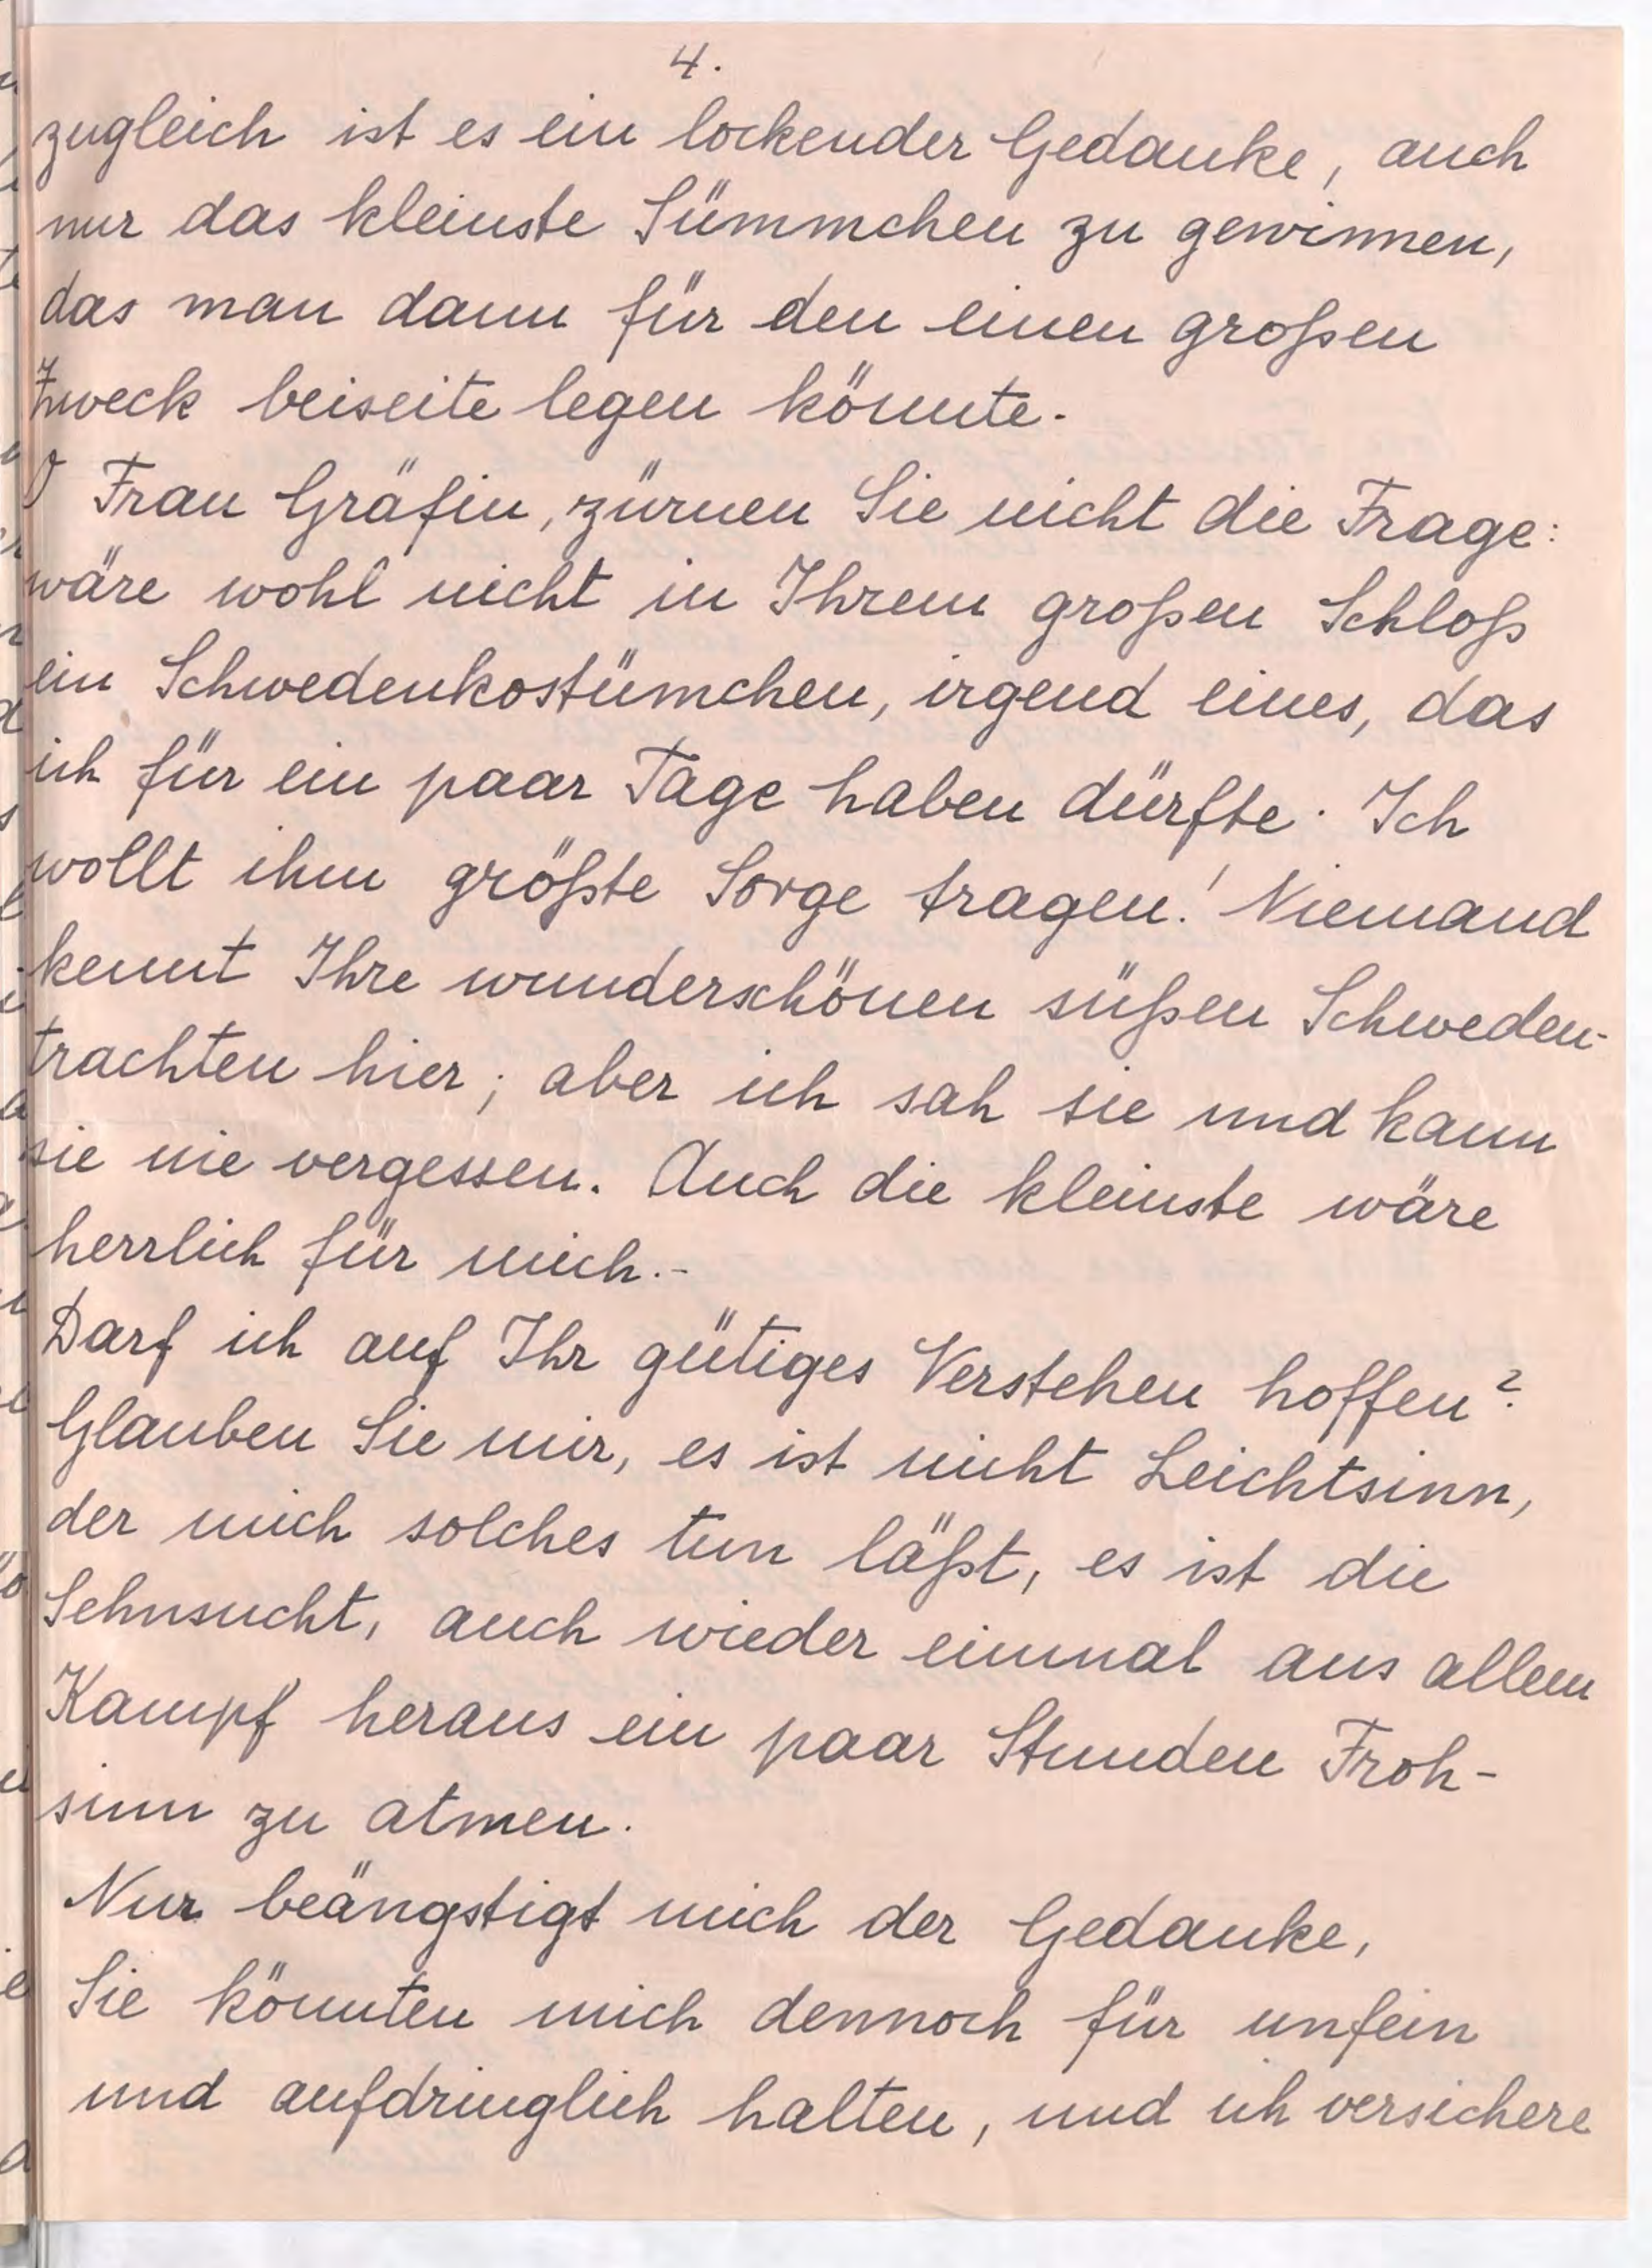 4.
zugleich ist es ein lockender Gedanke, auch
nur das kleinste Sümmchen zu gewinnen,
das man dann für den einen großen
Zweck beiseite legen könnte.
O Frau Gräfin, zürnen Sie nicht die Frage:
wäre wohl nicht in Ihrem großen Schloß
ein Schwedenkostümchen, irgend eines, das
ich für ein paar Tage haben dürfte. Ich
wollt ihm größte Sorge tragen! Niemand
kennt Ihre wunderschönen süßen Schweden-
trachten hier; aber ich sah sie und kann
sie nie vergessen. Auch die kleinste wäre
herrlich für mich.-
Darf ich auf Ihr gütiges Verstehen hoffen?
Glauben Sie mir, es ist nicht Leichtsinn,
der mich solches tun läßt, es ist die
Sehnsucht, auch wieder einmal aus allem
Kampf heraus ein paar Stunden Froh-
sinn zu atmen.
Nur beängstigt mich der Gedanke,
Sie könnten mich dennoch für unfein
und aufdringlich halten, und ich versichere